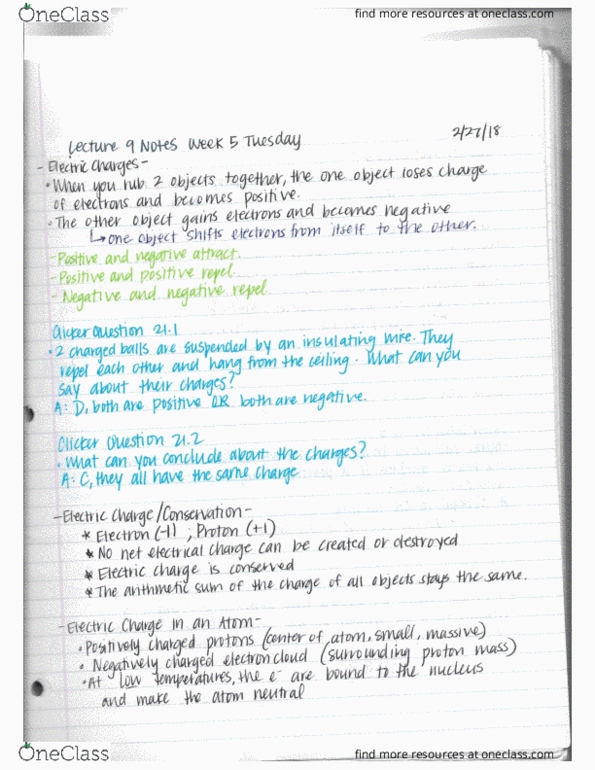 OneClass
find more resources at oneclass.com
Lecture 9 Notes Week 5 Tuesday
2/27/18
- Electric Charges -
• When you rub 2 objects together, the one object loses charge
of electrons and becomes positive.
• The other object gains electrons and becomes negative
↳ one object shifts electrons from itself to the other.
- Positive and negative attract.
- Positive and positive repel
- Negative and negative repel
Clicker Question 21.1
• 2 charged balls are suspended by an insulating wire. They
repel each other and hang from the ceiling. What can you
say about their charges?
A: D, both are positive OR both are negative.
Clicker Question 21.2
• What can you conclude about the charges?
A: C, they all have the same charge
- Electric Charge/Conservation -
* Electron (-1) ; Proton (+1)
* No net electrical charge can be created or destroyed
* Electric charge is conserved
* The arithmetic sum of the charge of all objects stays the same.
- Electric Charge in an Atom -
• Positively charged protons (center of atom, small, massive)
• Negatively charged electron cloud (surrounding proton mass)
• At low temperatures, the e⁻ are bound to the nucleus
and make the atom neutral
OneClass
find more resources at oneclass.com